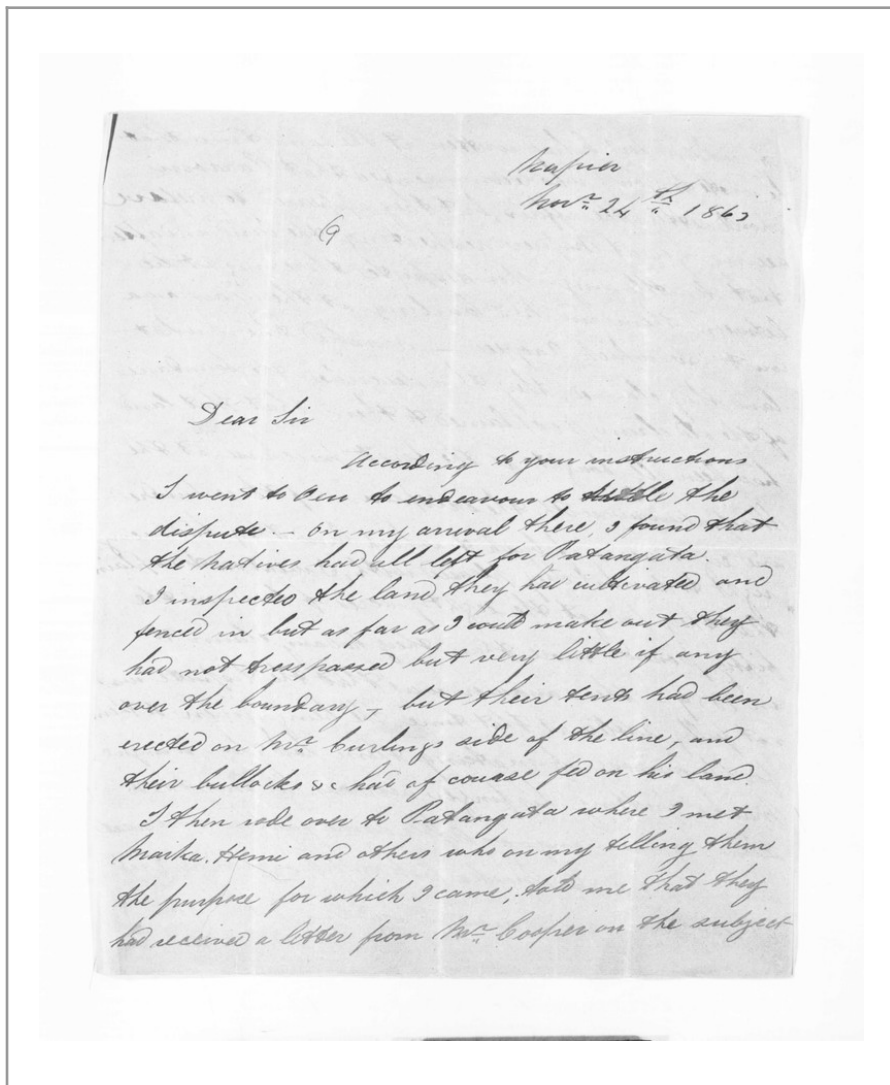 Napier
Novr 24th 1862
9
Dear Sir
According to your instructions
I went to Oeu to endeavour to settle the
dispute. – On my arrival there, I found that
the natives had all left for Patangata.
I inspected the land they had cultivated and
fenced in but as far as I could make out they
had not tresspassed but very little if any
over the boundary, but their tents had been
erected on Mr Curlings side of the line, and
their bullocks &c had of course fed on his land.
I then rode over to Patangata where I met
Maika. Hemi and others who on my telling them
the purpose for which I came, told me that they
had received a letter from Mr Cooper on the subject